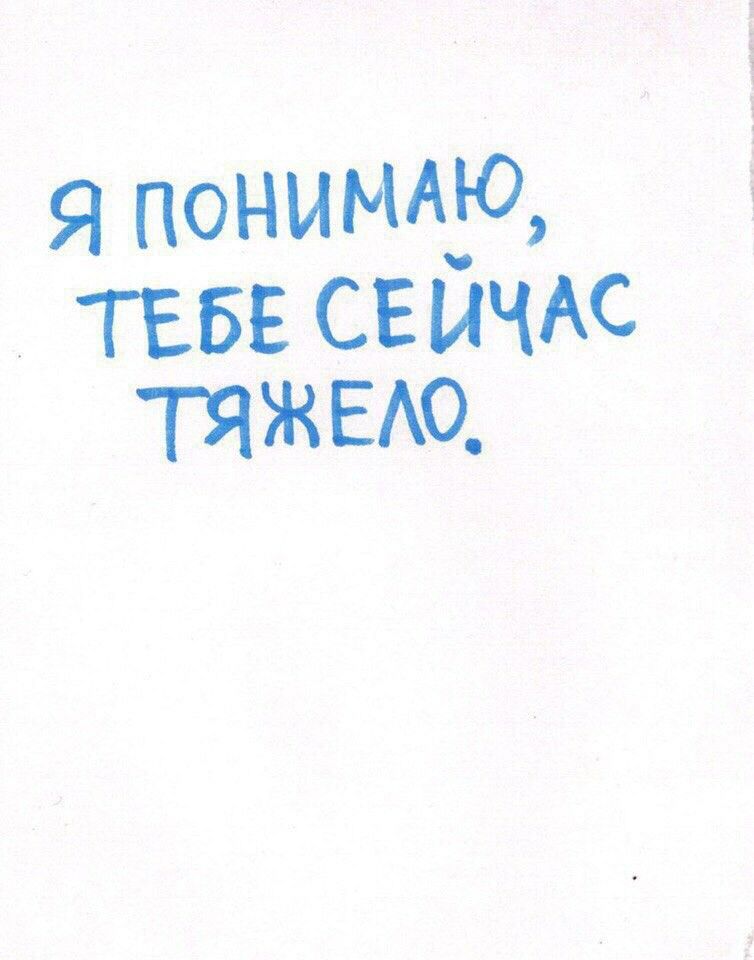 Я ПОНИМАЮ,
ТЕБЕ СЕЙЧАС
ТЯЖЕЛО.